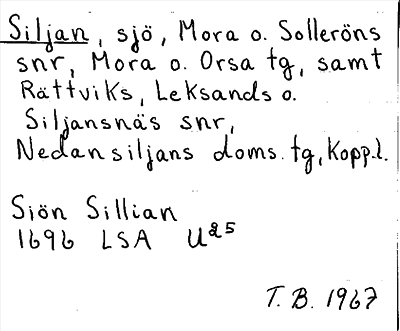 Siljan, sjö, Mora o. Solleröns
snr, Mora o. Orsa tg, samt
Rättviks, Leksands o.
Siljansnäs snr,
Nedansiljans doms. tg, Kopp.l.
Siön Sillian
1696 LSA U25
T. B. 1967